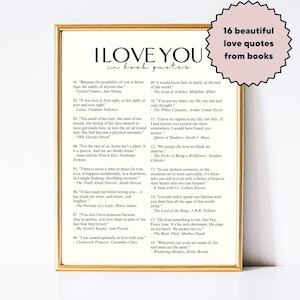 I LOVE YOU
in book quotes
16 beautiful
love quotes
from books
01. "Because the possibility of you is better
than the reality of anyone else."
- Twisted Games, Ana Huang
02. "It was love at first sight, at last sight, at
ever and ever sight."
- Lolita, Vladimir Nabokov
03. "The smell of her hair, the taste of her
mouth, the feeling of her skin seemed to
have got inside him, or into the air all round
him. She had become a physical necessity."
- 1984, George Orwell
04. "For the two of us, home isn't a place. It
is a person. And we are finally home."
- Anna and the French Kiss, Stephanie
Perkins
05. "There is never a time or place for true
love. It happens accidentally, in a heartbeat,
in a single flashing, throbbing moment."
- The Truth About Forever, Sarah Dessen
06. "It has made me better loving you... it
has made me wiser, and easier, and
brighter."
- The Portrait of a Lady, Henry James
07. "You don't love someone because
they're perfect, you love them in spite of the
fact that they're not."
- My Sister's Keeper, Jodi Picoult
08. "I am catastrophically in love with you."
- Clockwork Princess, Cassandra Clare
09. "I would know him in death, at the end
of the world."
- The Song of Achilles, Madeline Miller
10. "You are my heart, my life, my one and
only thought."
- The White Company, Arthur Conan Doyle
11. "I have no regrets in my life, but this... If
I had known you existed out there
somewhere, I would have found you
sooner."
- Queen of Shadows, Sarah J. Maas
12. "We accept the love we think we
deserve."
- The Perks of Being a Wallflower, Stephen
Chbosky
13. "In our darkest moments, in the
those who can still love us with a flicker of hope in
their hearts who are true
- It Ends with Us, Colleen Hoover
14. "I would rather spend one lifetime with
you than face all the ages of this world
alone."
- The Lord of the Rings, J.R.R. Tolkien
15. "He does something to me, that boy.
Every time. It's his only detriment. He steps
on my heart. He makes me cry."
- The Book Thief, Markus Zusak
16. "Whatever our souls are made of, his
and mine are the same."
- Wuthering Heights, Emily Brontë